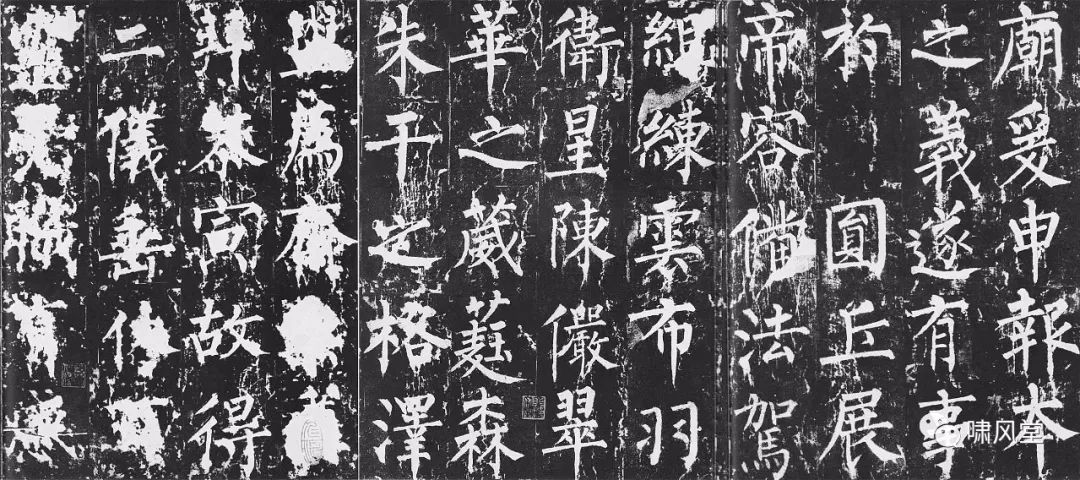 廟爰申報本
之義遂有事
於圓丘展
帝容備法駕
組練雲布羽
衛星陳儼翠
華之葳蕤森
朱干之格澤
為齋
恭寅故得
二儀垂休百
靈受職有
啸风堂